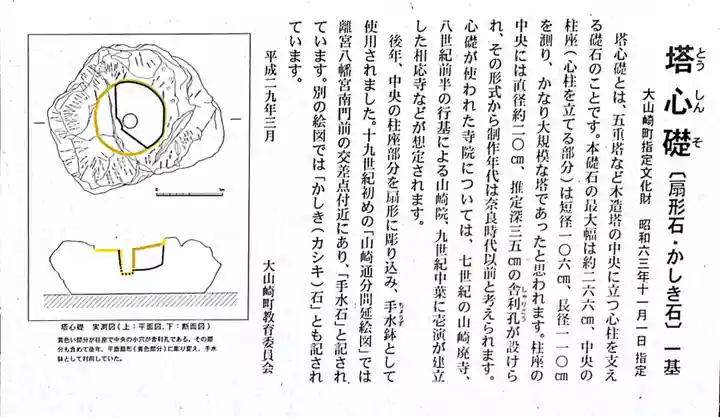 塔心礎〔扇形石・かしき石〕一基
とうしんそ
大山崎町指定文化財　昭和六三年十一月一日 指定
塔心礎とは、五重塔など木造塔の中央に立つ心柱を支え
る礎石のことです。本礎石の最大幅は約二六六㎝、中央の
柱座（心柱を立てる部分）は短径一〇六㎝、長径一一〇㎝
を測り、かなり大規模な塔であったと思われます。柱座の
中央には直径約二〇㎝、推定深三五㎝の舎利孔が設けら
しゃりこう
れ、その形式から制作年代は奈良時代以前と考えられます。
心礎が使われた寺院については、七世紀の山崎廃寺、
八世紀前半の行基による山崎院、九世紀中葉に壱演が建立
した相応寺などが想定されます。
後年、中央の柱座部分を扇形に彫り込み、手水鉢として
ちょうず
使用されました。十九世紀初めの「山崎通分間延絵図」では
離宮八幡宮南門前の交差点付近にあり、「手水石」と記され
ています。別の絵図では「かしき（カシキ）石」とも記され
ています。
平成二九年三月
大山崎町教育委員会
塔心礎　実測図（上：平面図、下：断面図）
黄色い部分が柱座で中央の小穴が舎利孔である。その部
分も含めて後年、平面扇形（黄色部分）に彫り変え、手水
鉢として利用していた。